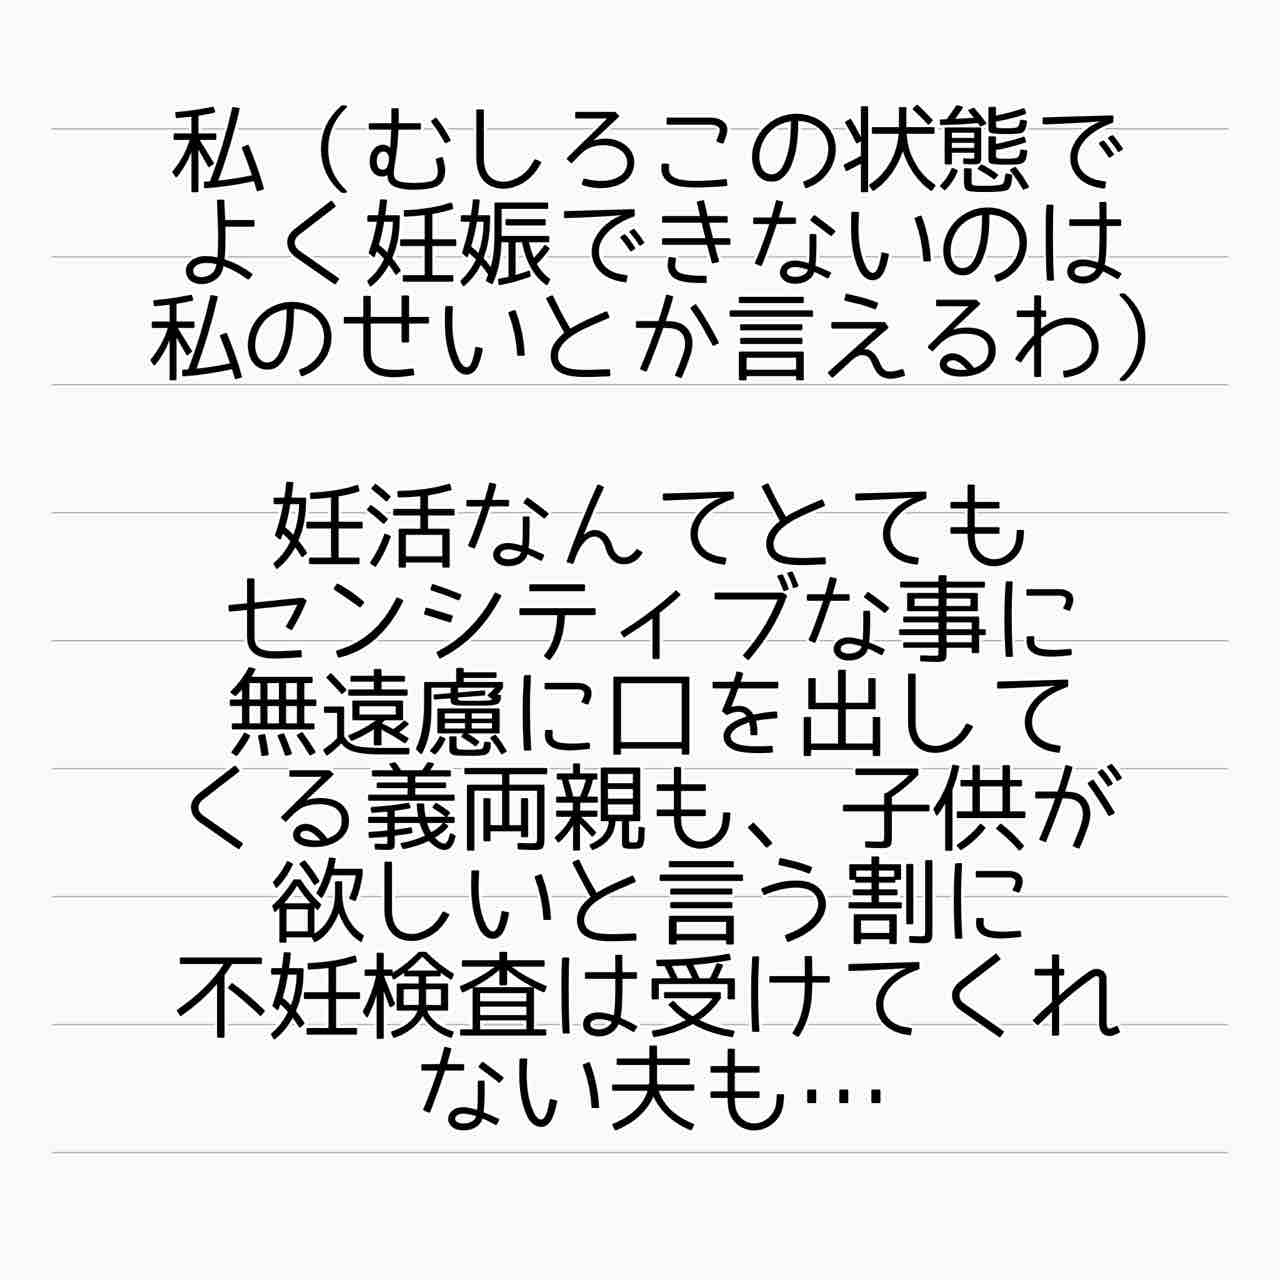 私（むしろこの状態で
よく妊娠できないのは
私のせいとか言えるわ）
妊活なんてとても
センシティブな事に
無遠慮に口を出して
くる義両親も、子供が
欲しいと言う割に
不妊検査は受けてくれ
ない夫も…